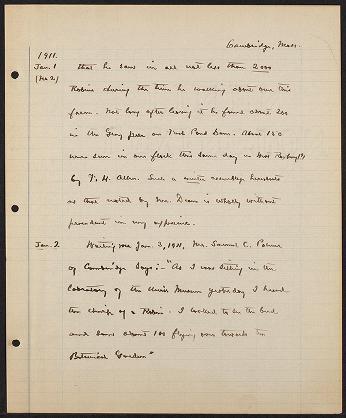 Cambridge, Mass.
1911.
Jan. 1
(No 2)
that he saw in all not less than 2000
Robins during the time he was walking about over this
farm. Not long after leaving it he found about 200
in the Gray place on Nob Pond Dam. About 150
were seen in one flock this same day in West Roxbury(?)
by F. H. Allen. Such a winter assemblage hereabouts
as that noted by Mr. Dean is wholly without
precedent in my experience.
Jan. 2
Writing me Jan. 3, 1911, Mr. Samuel C. Palmer
of Cambridge says:- "As I was sitting in the
laboratory of the Univ. Museum yesterday I heard
the chirp of a Robin. I looked to see the bird
and saw about 100 flying over towards the
Botanical Garden"